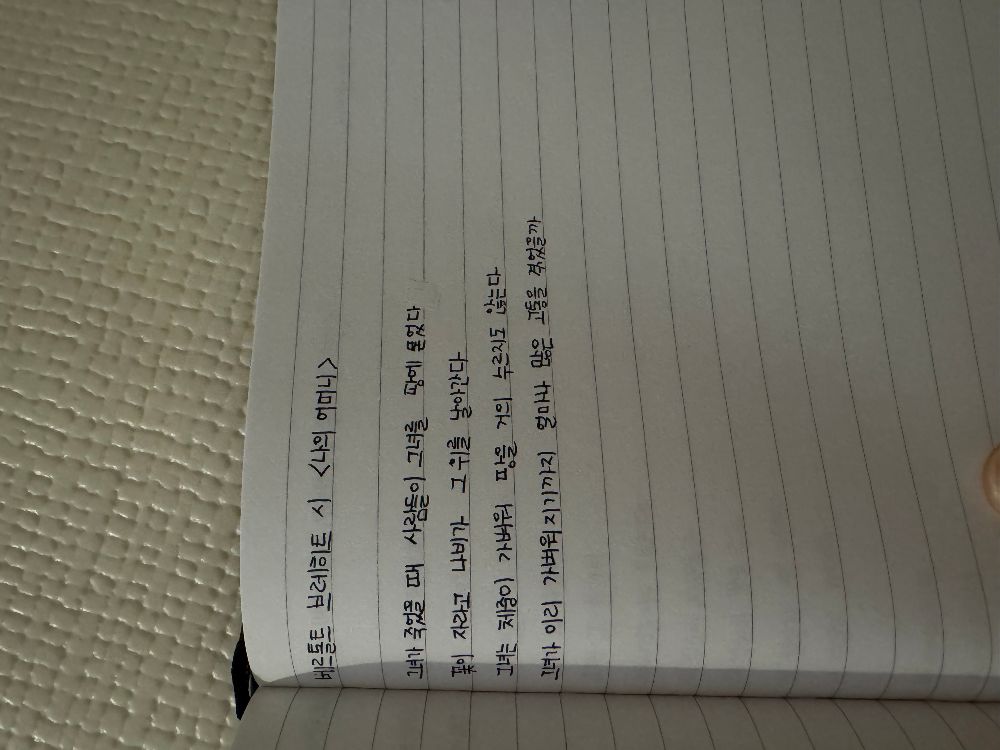 베르톨트 브레히트 시 <나의 어머니>
그녀가 죽었을 때 사람들이 그녀를 땅에 묻었다
꽃이 자라고 나비가 그 위를 날아간다
그녀는 체중이 가벼워 땅을 거의 누르지도 않는다
그녀가 이리 가벼워지기까지 얼마나 많은 고통을 겪었을까